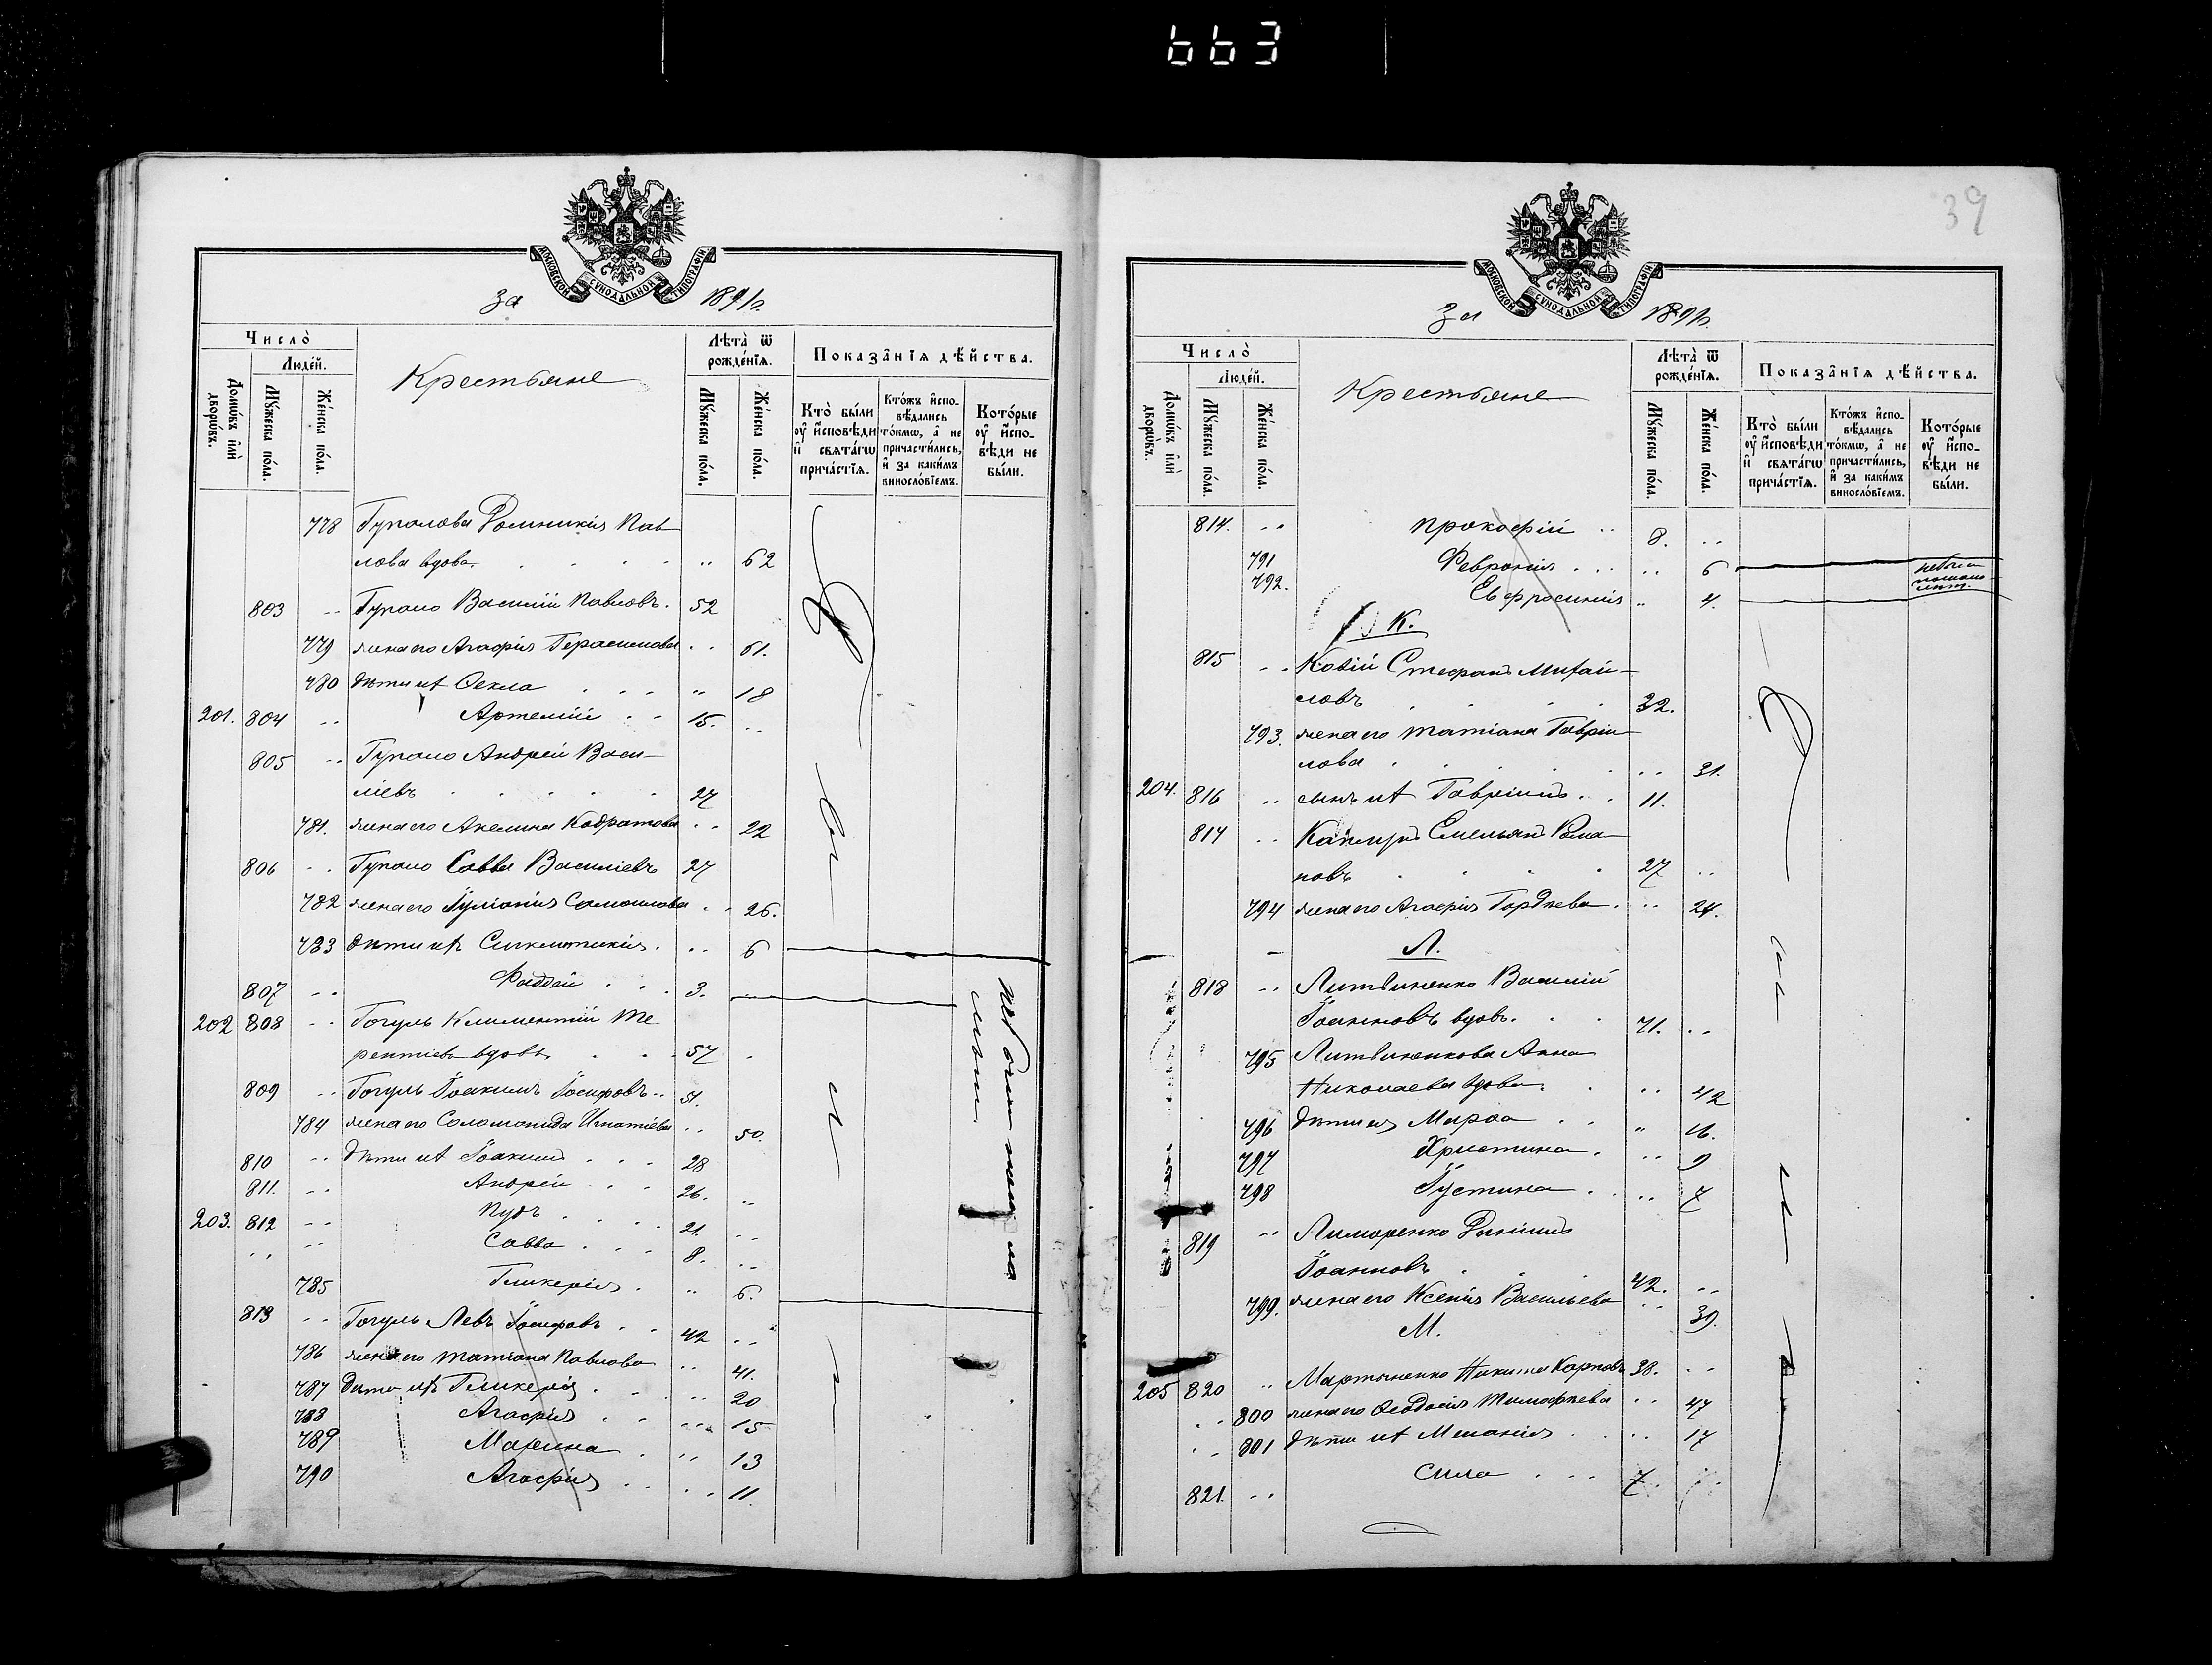 663
МОСКОВСКОЙ СѴНОДАЛЬНОЙ ТИПОГРАФІИ
За 1891 г.
Число̀
Людей.
Домѡвъ и҆лѝ дворѡвъ.
Мꙋжеска по́ла.
Же́нска по́ла.
Крестьяне
Лѣта̀ ѿ рожде́нїѧ.
Мꙋжеска по́ла.
Же́нска по́ла.
Показа̑нїѧ дѣ́йства.
Кто̀ бы́ли ᲂу҆ и҆сповѣди и҆ свѧта́гѡ прича́стїѧ.
Кто́жъ и҆сповѣдались то́кмѡ, а҆ не причасти́лись, и҆ за каки́мъ виносло́вїемъ.
Кото́рые ᲂу҆ и҆сповѣди не бы́ли.
778 Гупалова Домникія Пав-
лова вдова. 62
803 Гупало Василій Павловъ. 52
779 жена его Агафія Герасимова 61.
780 дѣти ихъ Ѳекла 18
201. 804 Артемій 15.
805 Гупало Андрей Васи-
ліевъ 27
781. жена его Акелина Кодратова 22
806 Гупало Савва Василіевъ 27
782 жена его Іуліанія Самоилова 26.
783 дѣти ихъ Синклитикія. 6
807 Фаддей 3.
не были по мало
202 808 Гогуль Климентій Те
рентіевъ вдовъ 57
809 Гогуль Іоакимъ Іосифовъ 51.
784 жена его Соломонида Игнатіева 50.
810 дѣти ихъ Іоакимъ 28
811. Андрей 26.
203. 812 Пудъ 21.
Савва 8.
785 Гликерія 6.
813 Гогуль Левъ Іосифовъ 42
786 жена его Татіана Павлова 41.
787 дѣти ихъ Гликерія 20
788 Агафія 15
789 Марина 13
790 Агафія 11.
39
МОСКОВСКОЙ СѴНОДАЛЬНОЙ ТИПОГРАФІИ
За 1891 г.
Число̀
Людей.
Домѡвъ и҆лѝ дворѡвъ.
Мꙋжеска по́ла.
Же́нска по́ла.
Крестьяне
Лѣта̀ ѿ рожде́нїѧ.
Мꙋжеска по́ла.
Же́нска по́ла.
Показа̑нїѧ дѣ́йства.
Кто̀ бы́ли ᲂу҆ и҆сповѣди и҆ свѧта́гѡ прича́стїѧ.
Кто́жъ и҆сповѣдались то́кмѡ, а҆ не причасти́лись, и҆ за каки́мъ виносло́вїемъ.
Кото́рые ᲂу҆ и҆сповѣди не бы́ли.
814. Прокофій 8.
791 Февронія 6
792. Евфросинія 4.
К.
815 Ковій Стефанъ Михай-
ловъ 32.
793. жена его Татіана Гаврии-
лова 31.
204. 816 сынъ ихъ Гавріилъ 11.
817 Емельянъ Рома-
новъ 27
794 жена его Агафія Гордѣева 24.
Л.
818 Литвиненко Василій
Іоанновъ вдовъ. 71.
795 Литвиненкова Анна
Николаева вдова. 42
796 дѣти ея Марѳа 16.
797 Христина 9
798 Іустина 7
819 Лиморенко Даніилъ
Іоанновъ 42.
799. жена его Ксенія Васильева 39.
М.
205 820 Мартыненко Никита Карповъ 38.
800 жена его Ѳеодосія Тимофѣева 47
801 дѣти ихъ Меланія 17
821. Сила 7.